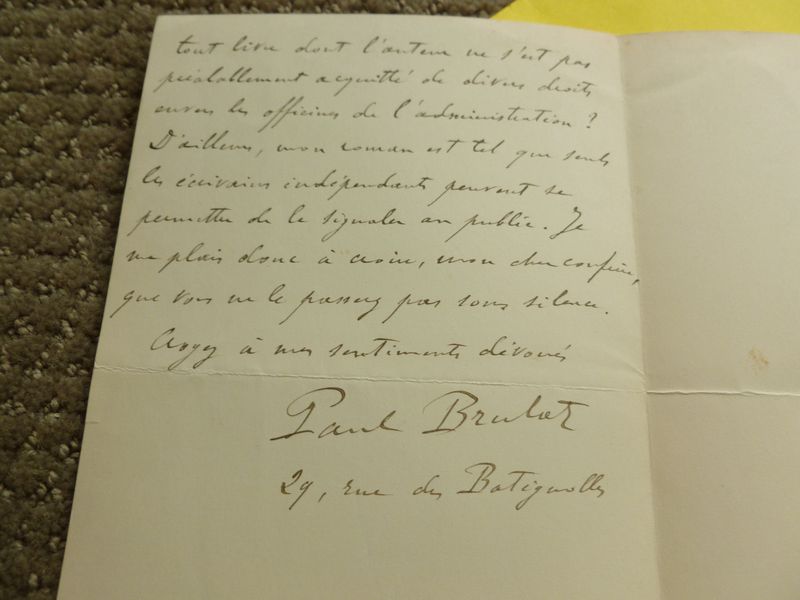 tout livre dont l'auteur ne s'est pas
préalablement acquitté de divers droits
envers les officines de l'administration ?
D'ailleurs, mon roman est tel que seuls
les écrivains indépendants peuvent se
permettre de le signaler au public. Je
me plais donc à croire, mon cher confrère,
que vous ne le passerez pas sous silence.
Croyez à mes sentiments dévoués
Paul Brulat
29, rue des Batignolles